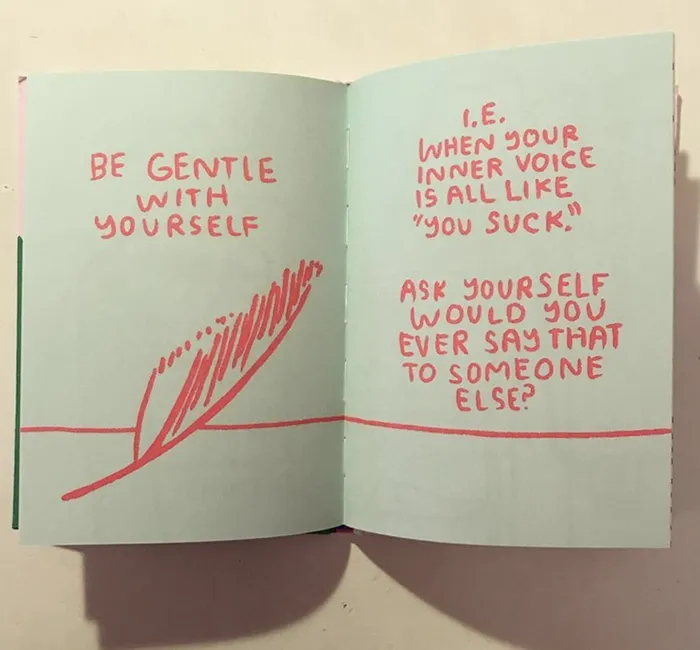 BE GENTLE
WITH
YOURSELF
I.E.
WHEN YOUR
INNER VOICE
IS ALL LIKE
"YOU SUCK."
ASK YOURSELF
WOULD YOU
EVER SAY THAT
TO SOMEONE
ELSE?